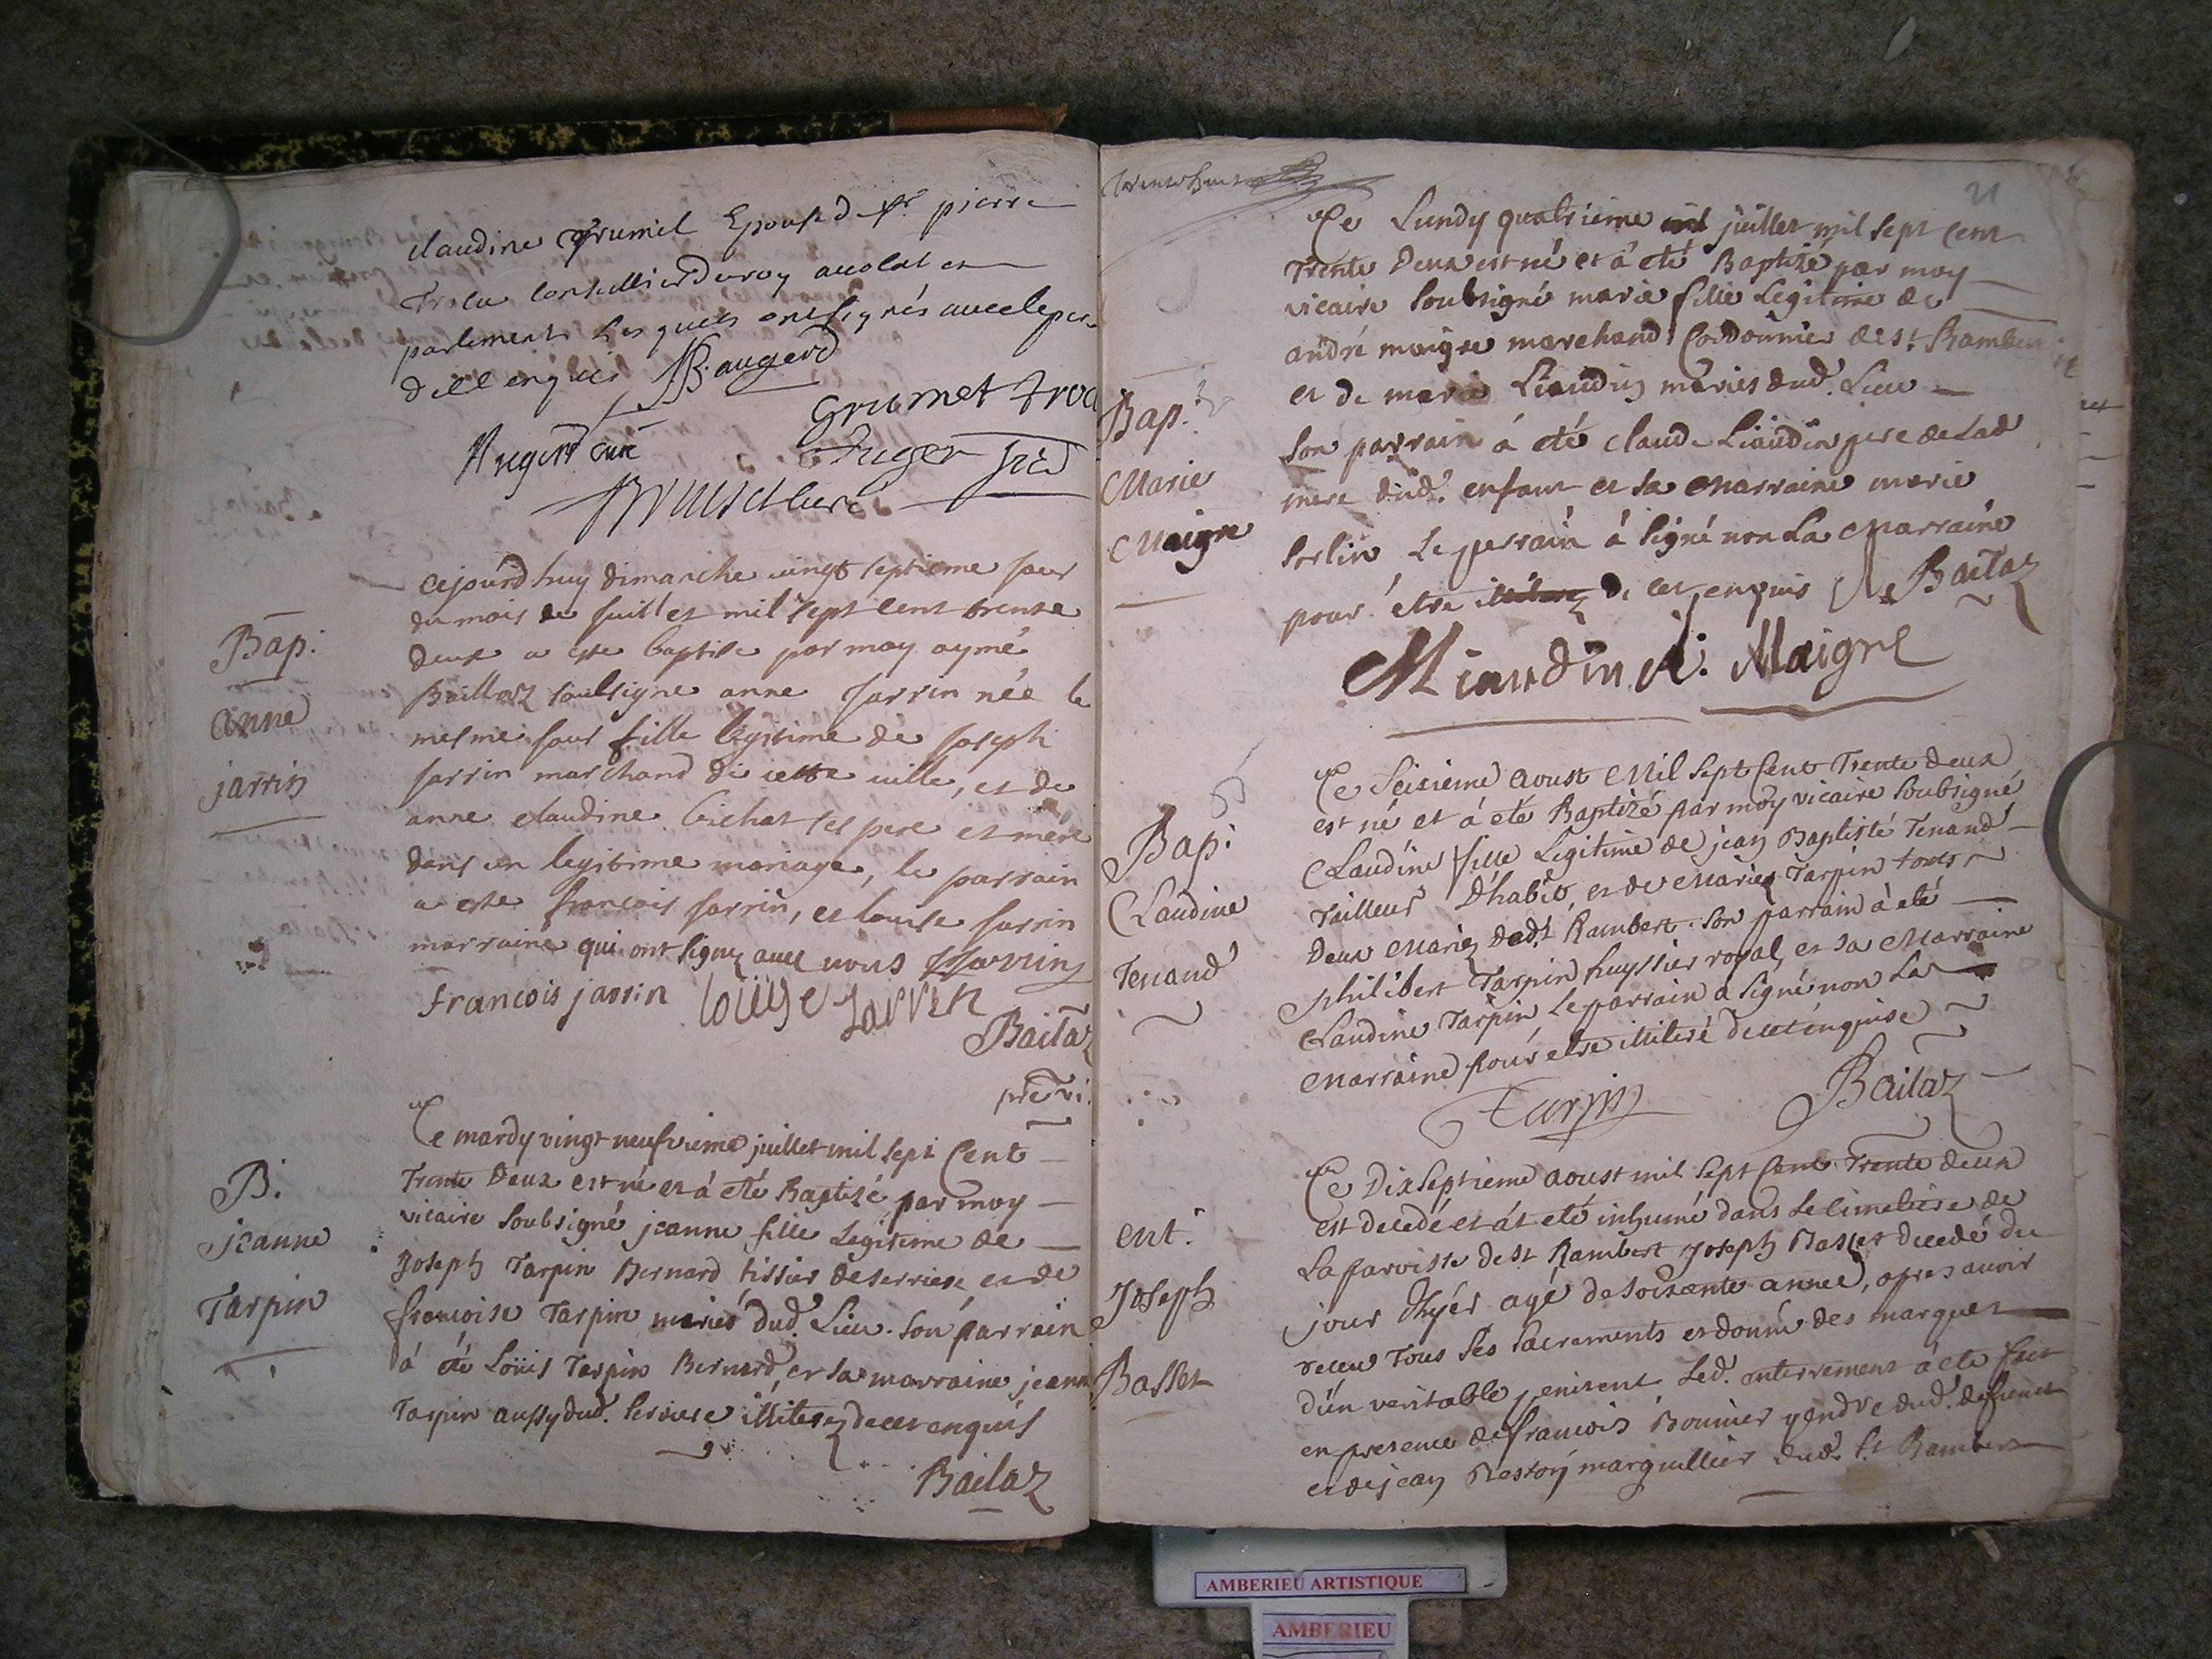 claudine Grumet Epouse de sr pierre
Trocu Conseillier du roy avocat en
parlement Lesquels ont signés avec le pere
de ce enquis JB. augerd
Grumet Troc
Augerd curé
Auger
ajourdhuy dimanche vingt septieme jour
du mois de juillet mil sept cent trente
deux a este baptisé par moy aymé
Baillaz soubsigne anne Jarrin née le
mesme jour fille legitime de joseph
Jarrin marchand de cette ville, et de
anne claudine bichat ses pere et mere
dans un legitime mariage, le parrain
a este françois jarrin, et louise jarrin
marraine qui ont signez avec nous Jarrin
Francois jarrin loüise jarrin
Bailaz
pretre vi.
Bap.
anne
jarrin
Ce mardy vingt neufvieme juillet mil sept Cent
Trente Deux est né et á eté Baptizé par moy
vicaire soubsigné jeanne fille Legitime de
Joseph Tarpin Bernard tissier de serriere et de
françoise Tarpin mariés dud. Lieu. son parrain
á été Loüis Tarpin Bernard, et sa marraine jeanne
Tarpin aussy dud. serriere illiterez de ce enquis
Bailaz
B.
jeanne
Tarpin
21
Ce Lundy quatrieme juillet mil sept Cent
Trente Deux est né et á eté Baptizé par moy
vicaire soubsigné marie fille Legitime de
andré maigre marchand Cordonnier de st Rambert
et de marie Liaudin mariés dud. Lieu
son parrain á eté claude Liaudin pere de Lad
mere dud. enfant et sa Marraine marie
sorlin Le perrain á signé non La Marraine
pour etre de cet enquis Bailaz
Miaudin A. Maigre
Bap.
Marie
Maigre
Ce seixieme aoust Mil sept Cent Trente deux
est né et á eté Baptizé par moy vicaire soubsigné
Claudine fille Legitime de jean Baptiste Tenand
Tailleur D'habits, et de Marie Tarpin tous
Deux Mariez dud. st Rambert. son parrain á eté
philibert Tarpin huyssier royal, et sa Marraine
Claudine Tarpin Le parrain a signé non La
Marraine pour etre illiteré de ce enquise
Tarpin Bailaz
Bap.
Claudine
Tenand
Ce Dix septieme aoust mil sept Cent Trente deux
est decedé et át eté inhumé dans Le cimetiere de
La paroisse de st Rambert Joseph Basset decedé du
jour d'hyer agé de soixante année, apres avoir
receu Tous ses sacrements et donné des marques
d'un veritable penitent Led. enterrement á eté fait
en presence de françois Bonnier gendre dud. defunct
et de jean Reston marguillier dud. st Rambert
ent.
Joseph
Basset
AMBERIEU ARTISTIQUE
AMBERIEU